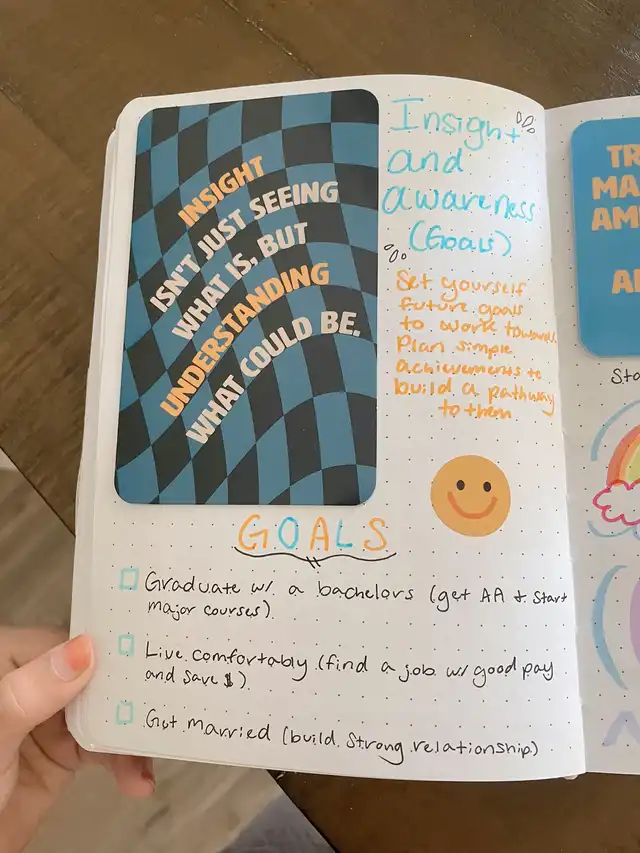 INSIGHT
ISN'T JUST SEEING
WHAT IS, BUT
UNDERSTANDING
WHAT COULD BE.
Insight
and
awareness
(Goals)
Set yourself
future goals
to work towards.
Plan simple
achievements to
build a pathway
to them
GOALS
Graduate w/ a bachelors (get AA + Start
major courses)
Live comfortably (find a job w/ good pay
and save $)
Get married (build strong relationship)
TR
MA
AM
Sta